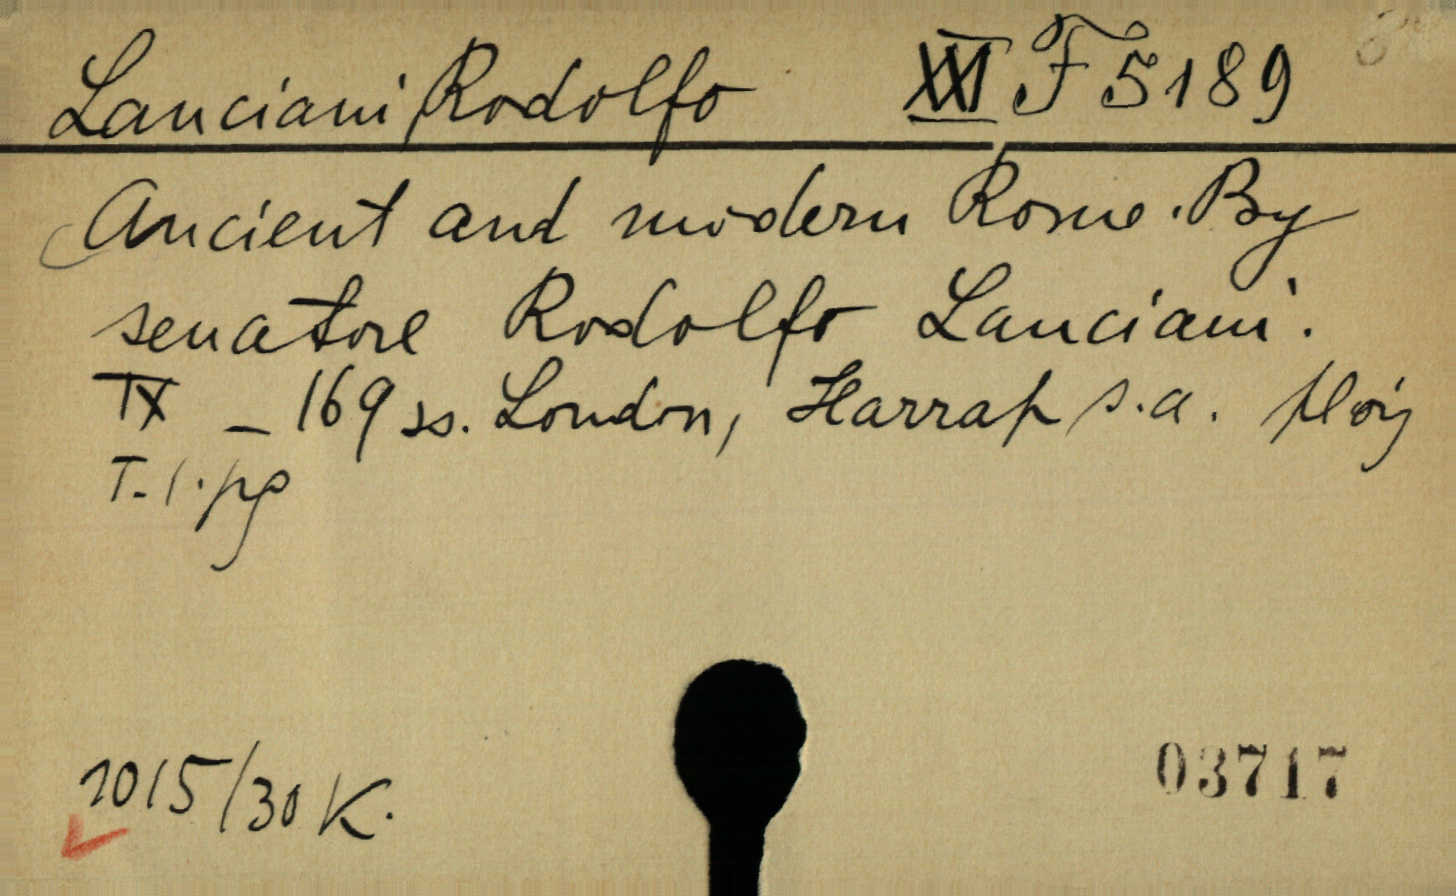 Lanciani Rodolfo XXI F 5189
Ancient and modern Rome. By
senatore Rodolfo Lanciani.
IX _ 169 ss. London, Harrap s.a.
T. 1.
1015/30 K.
03717